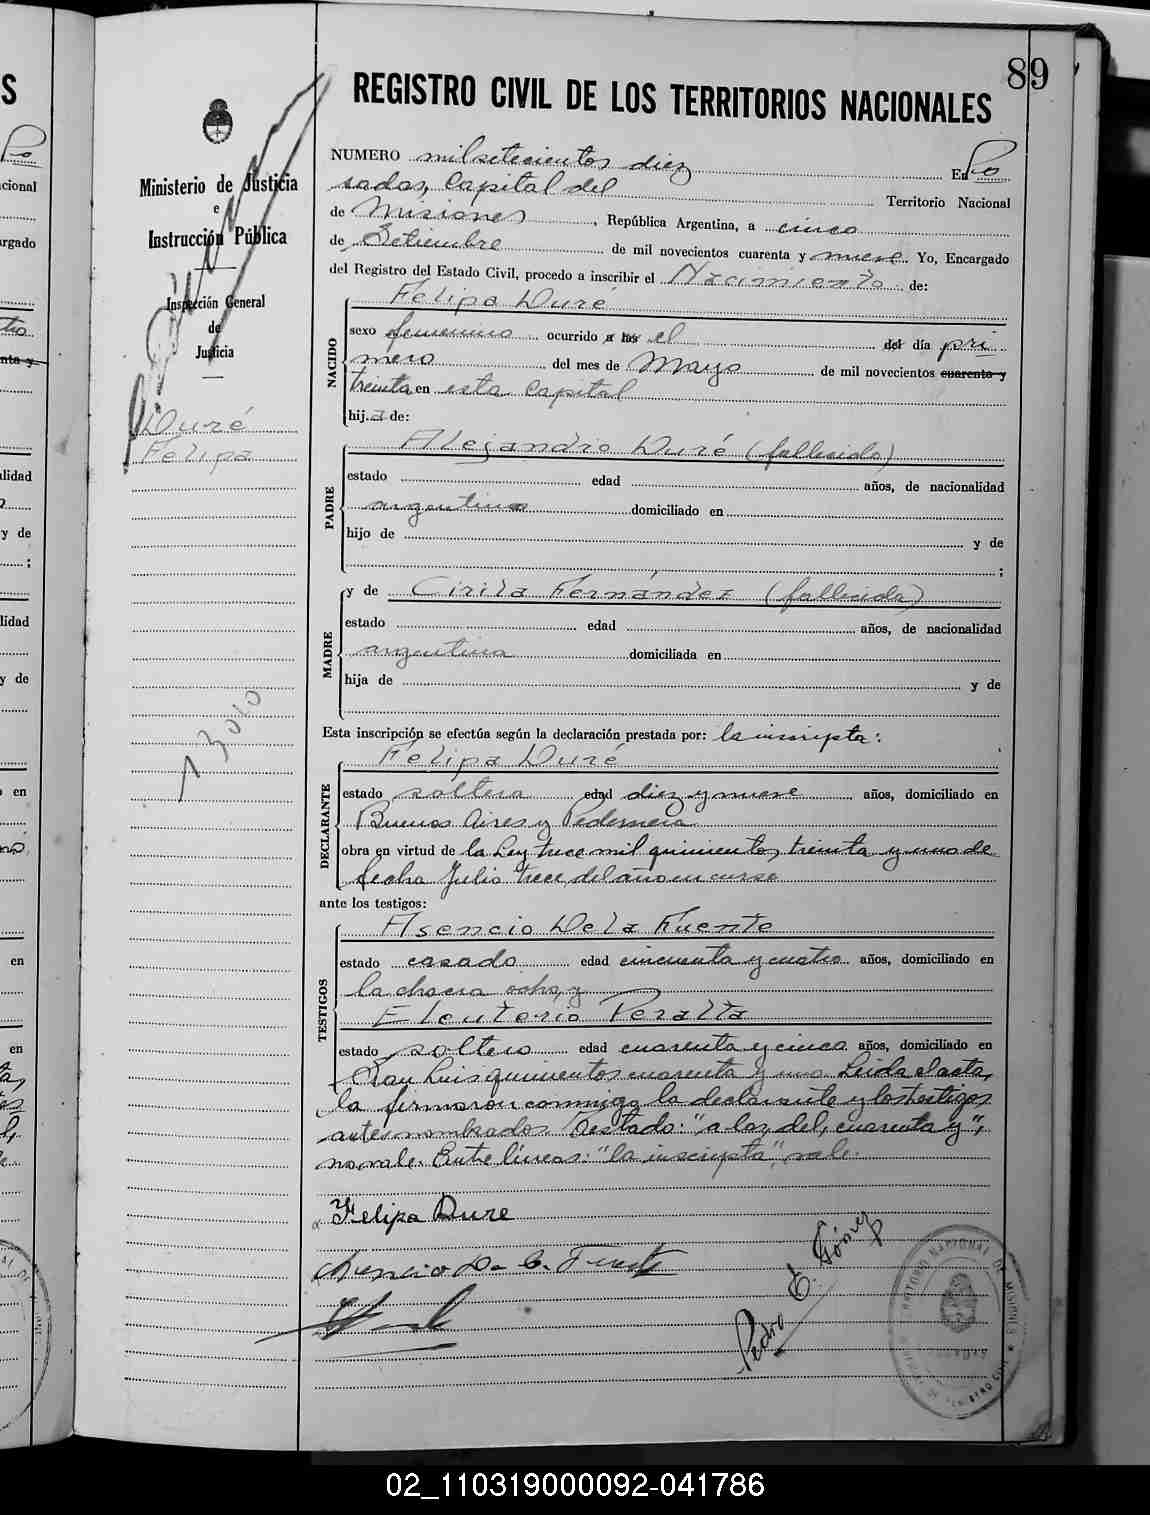 89
REGISTRO CIVIL DE LOS TERRITORIOS NACIONALES
Ministerio de Justicia
e
Instrucción Pública
Inspección General
de
Justicia
Duré
Felipa
13040
NUMERO milsetecientos diez En Po
sadas, Capital del Territorio Nacional
de Misiones, República Argentina, a cinco
de Setiembre de mil novecientos cuarenta y nueve. Yo, Encargado
del Registro del Estado Civil, procedo a inscribir el Nacimiento de:
NACIDO
Felipa Duré
sexo femenino ocurrido a las el del día pri
mero del mes de Mayo de mil novecientos cuarenta y
treinta en esta Capital
hija de:
PADRE
Alejandro Duré (fallecido)
estado edad años, de nacionalidad
argentina domiciliado en
hijo de y de
;
MADRE
y de Cirila Fernández (fallecida)
estado edad años, de nacionalidad
argentina domiciliada en
hija de y de
Esta inscripción se efectúa según la declaración prestada por: la inscripta:
DECLARANTE
Felipa Duré
estado soltera edad diez y nueve años, domiciliado en
Buenos Aires y Pedernera
obra en virtud de la Ley trece mil quinientos treinta y uno de
fecha Julio trece del año en curso
ante los testigos:
TESTIGOS
Asencio De la Fuente
estado casado edad cincuenta y cuatro años, domiciliado en
la chacra ocho, y
Eleuterio Peralta
estado soltero edad cuarenta y cinco años, domiciliado en
San Luis quinientos cuarenta y uno Leida el acta,
la firmaron conmigo la declarante y los testigos
antes nombrados Testado: "a las, del, cuarenta y",
no vale. Entre líneas: "la inscripta", vale.
Felipa Dure
Asencio De la Fuente
Pedro E. Gómez
02_110319000092-041786